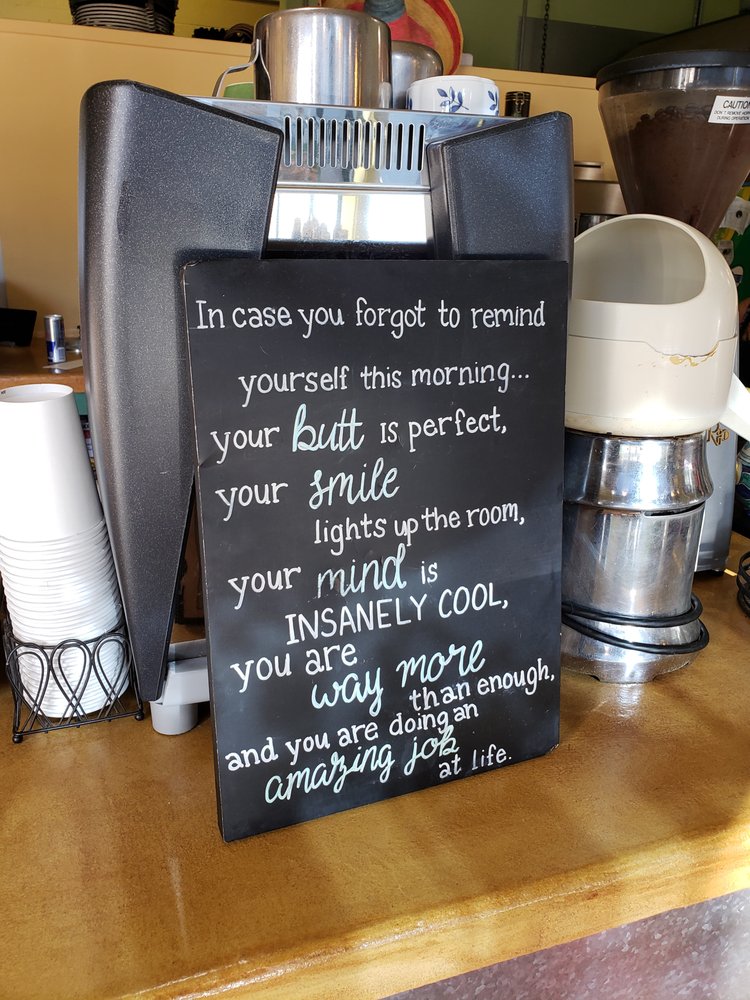 In case you forgot to remind
yourself this morning...
your butt is perfect,
your smile
lights up the room,
your mind is
INSANELY COOL,
you are
way more
than enough,
and you are doing an
amazing job
at life.
CAUTION